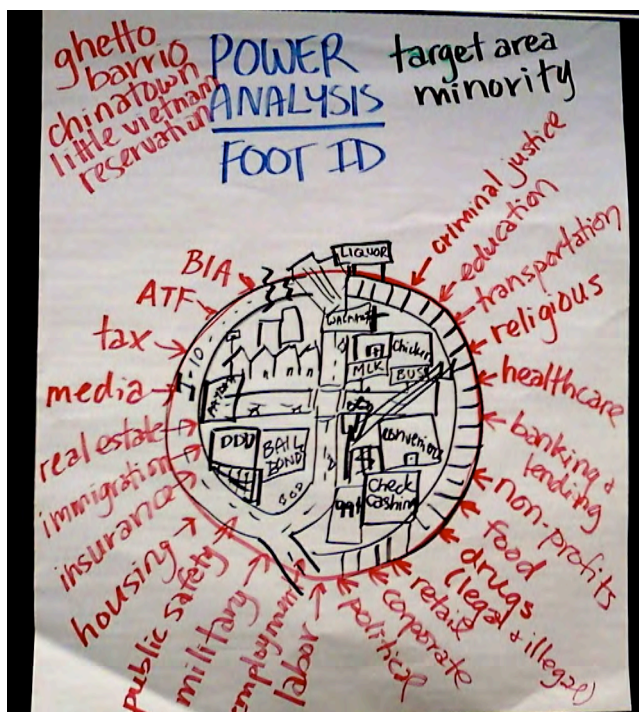 ghetto
barrio
chinatown
little vietnam
reservation
POWER
ANALYSIS
FOOT ID
target area
minority
criminal justice
education
transportation
religious
healthcare
banking &
lending
non-profits
food
drugs
(legal & illegal)
retail
corporate
political
labor
employment
military
public safety
housing
insurance
immigration
real estate
media
tax
ATF
BIA
LIQUOR
WALMART
I-10
Chicken
MLK
BUS
PAYDAY
DDD
BAIL
BOND
Convenience
Check
Cashing
99¢